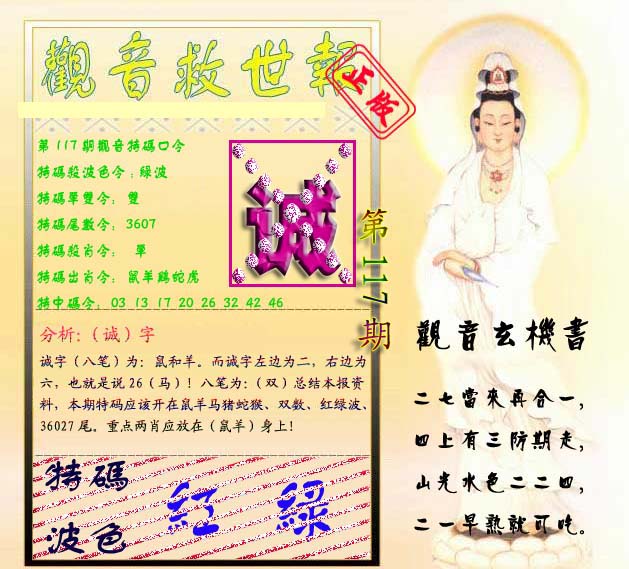 觀音救世報
正版
第117期觀音特碼口令
特碼殺波色令:綠波
特碼單雙令: 雙
特碼尾數令: 3607
特碼殺肖令: 單
特碼出肖令: 鼠羊鷄蛇虎
特中碼令: 03 13 17 20 26 32 42 46
诚
第117期
分析:(诚)字
诚字(八笔)为:鼠和羊。而诚字左边为二,右边为
六,也就是说26(马)!八笔为:(双)总结本报资
料,本期特码应该开在鼠羊马猪蛇猴、双数、红绿波、
36027尾。重点两肖应放在(鼠羊)身上!
特碼
波色
紅 綠
觀音玄機書
二七當來再合一,
四上有三防期走,
山光水色二二四,
二一早熟就可吃。